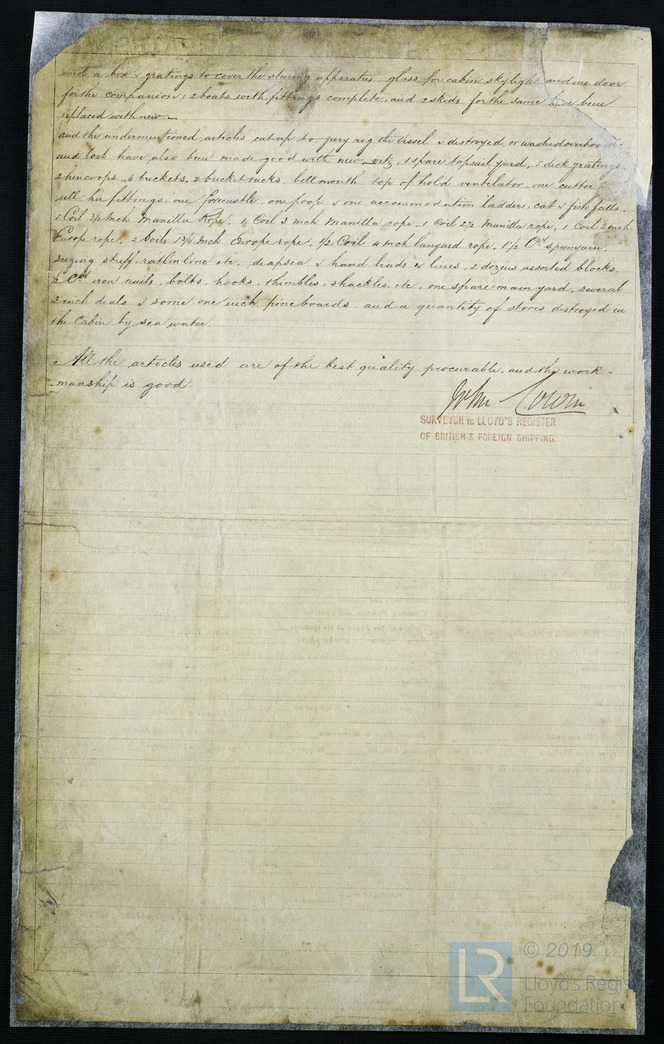 and a box & gratings to cover the steering apparatus, glass for cabin skylight and one door
for the companion; 2 boats with fittings complete, and 2 skids for the same have been
replaced with new —
and the undermentioned articles cut up to jury rig the Vessel & destroyed or washed overboard
and lost have also been made good with new, viz, 1 spare topsail yard, deck gratings,
2 hencoops, 4 buckets, 2 bucket racks, bellmouth top of hold ventilator, one cutter
all her fittings, one forecastle, one poop & one accommodation ladder, cat & fish falls,
1 Coil Inch Manilla Rope, Coil 3 inch Manilla rope, 1 Coil 2½ Manilla rope, 1 Coil 2 inch
Europe rope, 2 Coils Inch Europe rope, ½ Coil 4 inch lanyard rope, 1½ Cwt spunyarn
seizing stuff, ratline line etc, deapsea & hand leads & lines, 2 dozens assorted blocks,
½ Cwt iron nails, bolts, hooks, thimbles, shackles, etc, one spare main yard, several
inch deals & some one inch pine boards and a quantity of stores destroyed in
the Cabin by sea water.
All the articles used are of the best quality procurable, and the work-
-manship is good.
John
SURVEYOR TO LLOYD'S REGISTER
OF BRITISH & FOREIGN SHIPPING.
LR
© 2019
Lloyd's Register
Foundation